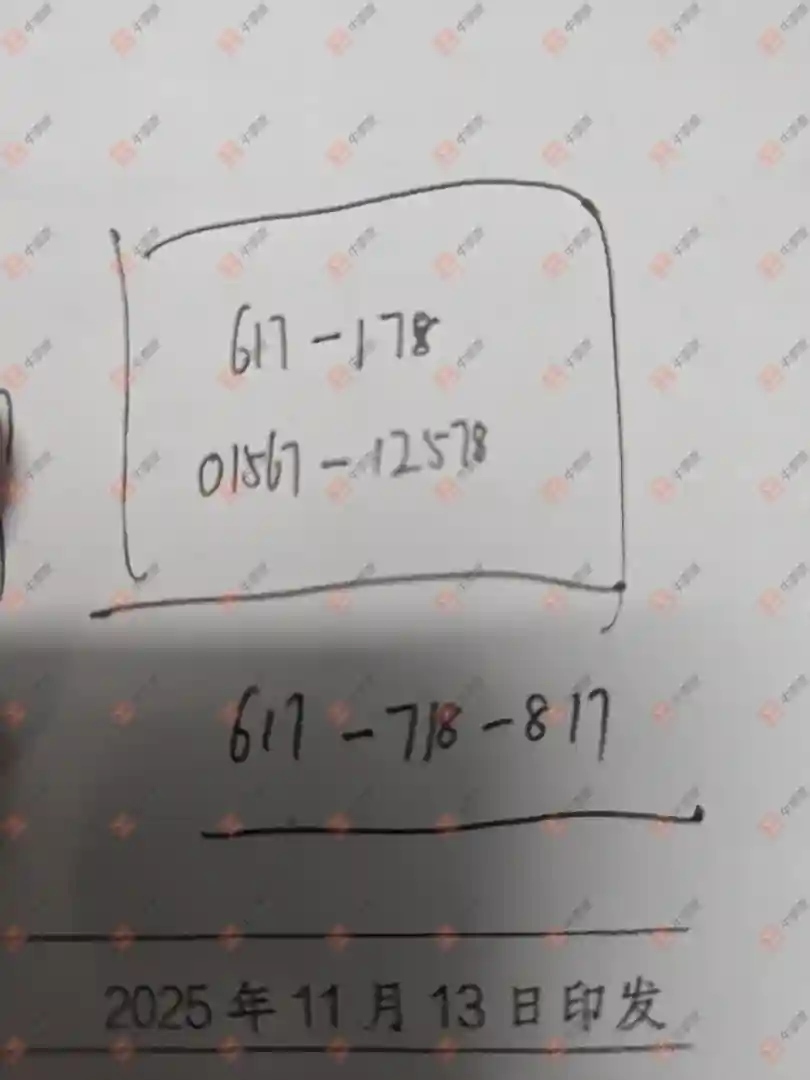 617-178
01567-12578
617-718-817
2025年11月13日印发